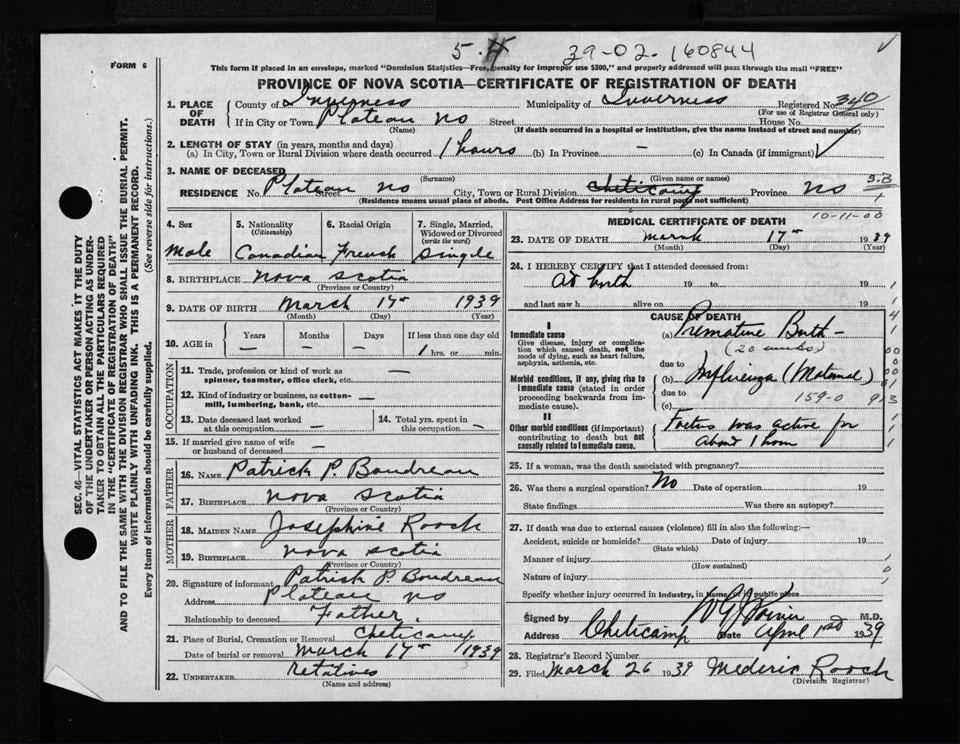 5. H 39-02-160844
FORM 6
This form if placed in an envelope, marked "Dominion Statistics—Free, penalty for improper use $300," and properly addressed will pass through the mail "FREE"
PROVINCE OF NOVA SCOTIA—CERTIFICATE OF REGISTRATION OF DEATH
1. PLACE OF DEATH
County of Inverness Municipality of Inverness Registered No. 340
(For use of Registrar General only)
If in City or Town Plateau NS Street House No.
(Name) (If death occurred in a hospital or institution, give the name instead of street and number)
2. LENGTH OF STAY (in years, months and days)
(a) In City, Town or Rural Division where death occurred 1 hours (b) In Province — (c) In Canada (if immigrant) ✓
3. NAME OF DECEASED
(Surname) (Given name or names)
RESIDENCE No. Plateau NS City, Town or Rural Division Cheticamp Province NS
(Residence means usual place of abode. Post Office Address for residents in rural parts not sufficient)
S.B
10-11-00
4. Sex Male
5. Nationality (Citizenship) Canadian
6. Racial Origin French
7. Single, Married, Widowed or Divorced (write the word) Single
8. BIRTHPLACE Nova Scotia
(Province or Country)
9. DATE OF BIRTH March 17th 1939
(Month) (Day) (Year)
10. AGE in Years — Months — Days — If less than one day old 1 hrs. or min.
OCCUPATION
11. Trade, profession or kind of work as spinner, teamster, office clerk, etc. —
12. Kind of industry or business, as cotton-mill, lumbering, bank, etc. —
13. Date deceased last worked at this occupation — 14. Total yrs. spent in this occupation —
15. If married give name of wife or husband of deceased —
FATHER
16. NAME Patrick P. Boudreau
17. BIRTHPLACE Nova Scotia
(Province or Country)
MOTHER
18. MAIDEN NAME Josephine Roach
19. BIRTHPLACE Nova Scotia
(Province or Country)
20. Signature of informant Patrick P Boudreau
Address Plateau NS
Relationship to deceased Father.
21. Place of Burial, Cremation or Removal Cheticamp
Date of burial or removal March 17th 1939
22. UNDERTAKER Relatives
(Name and address)
MEDICAL CERTIFICATE OF DEATH
23. DATE OF DEATH March 17th 1939
(Month) (Day) (Year)
24. I HEREBY CERTIFY that I attended deceased from:
At birth 19 to 19
and last saw h alive on 19
CAUSE OF DEATH
I
Immediate cause
Give disease, injury or complication which caused death, not the mode of dying, such as heart failure, asphyxia, asthenia, etc.
(a) Premature Birth —
(20 weeks)
due to
Morbid conditions, if any, giving rise to immediate cause (stated in order proceeding backwards from immediate cause).
(b) Influenza (Maternal)
due to 159-0
(c)
II
Other morbid conditions (if important) contributing to death but not causally related to immediate cause.
Foetus was active for
about 1 hour
25. If a woman, was the death associated with pregnancy?
26. Was there a surgical operation? No Date of operation 19
State findings Was there an autopsy?
27. If death was due to external causes (violence) fill in also the following:—
Accident, suicide or homicide? Date of injury 19
(State which)
Manner of injury
(How sustained)
Nature of injury
Specify whether injury occurred in industry, in home, or in public place
Signed by M.D.
Address Cheticamp Date April 1st 1939
28. Registrar's Record Number
29. Filed March 26 1939 Mederic Roach
(Division Registrar)
SEC. 46—VITAL STATISTICS ACT MAKES IT THE DUTY
OF THE UNDERTAKER OR PERSON ACTING AS UNDER-
TAKER TO OBTAIN ALL THE PARTICULARS REQUIRED
IN THE "CERTIFICATE OF REGISTRATION OF DEATH"
AND TO FILE THE SAME WITH THE DIVISION REGISTRAR WHO SHALL ISSUE THE BURIAL PERMIT.
WRITE PLAINLY WITH UNFADING INK. THIS IS A PERMANENT RECORD.
Every item of information should be carefully supplied. (See reverse side for instructions.)